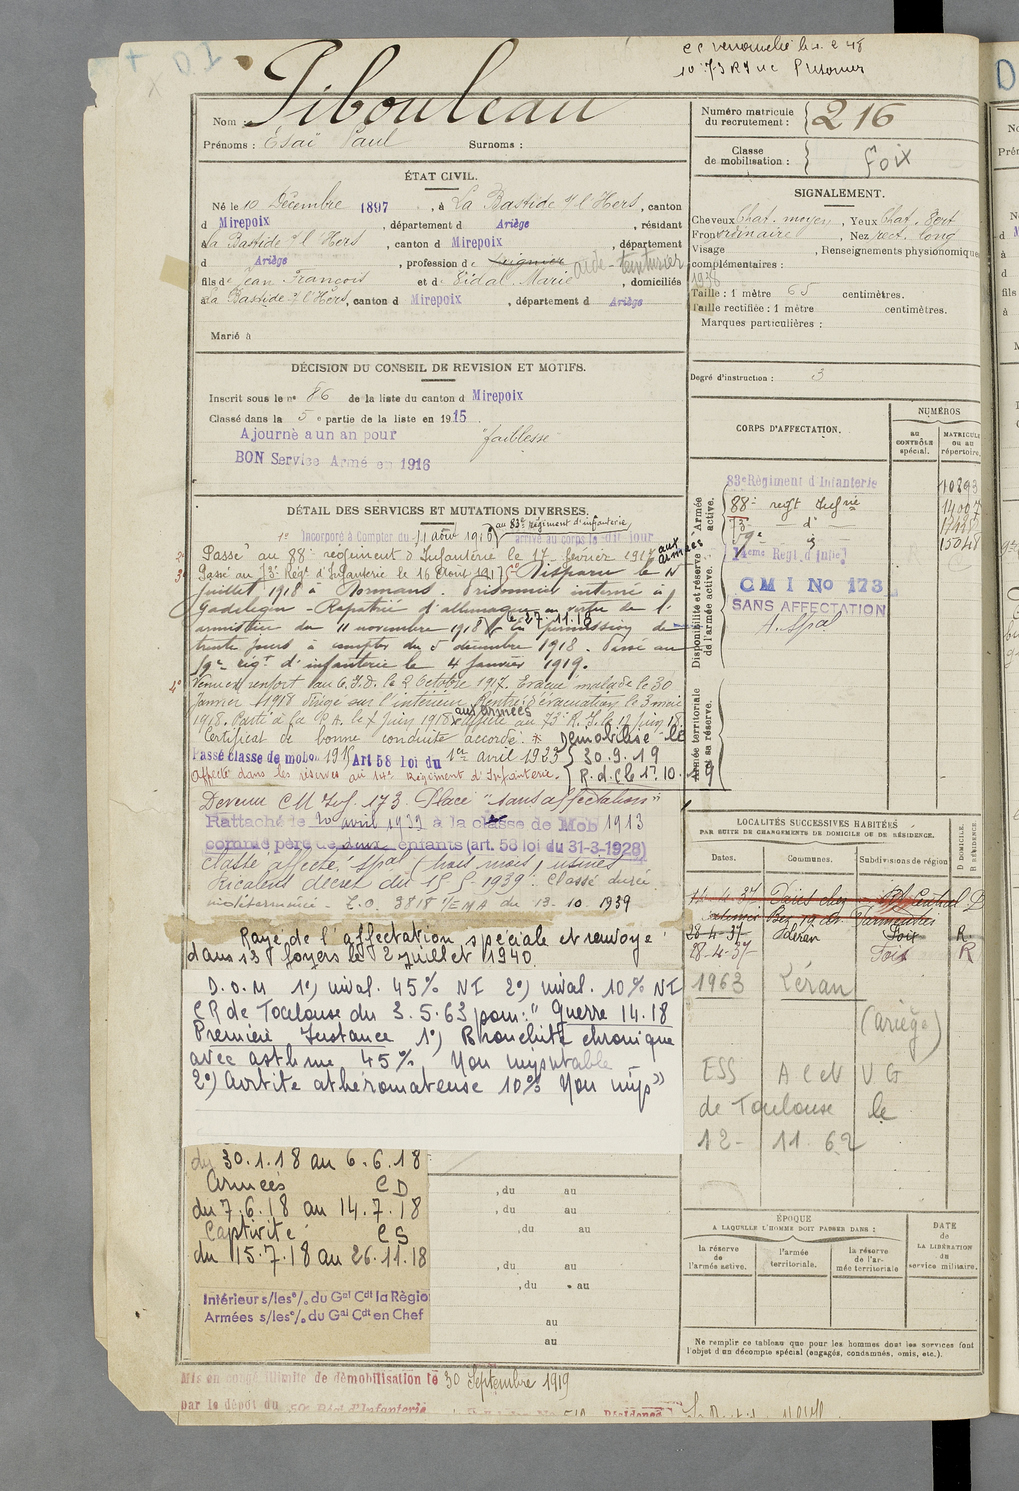 10 73 RI
Nom : Pibouleau
Prénoms : Esaï Paul Surnoms :
Numéro matricule du recrutement : 216
Classe de mobilisation : Foix
ÉTAT CIVIL.
Né le 10 Décembre 1897, à La Bastide s/l'Hers, canton
d Mirepoix, département d Ariège, résidant
à La Bastide s/l'Hers, canton d Mirepoix, département
d Ariège, profession de aide-teinturier
fils de Jean François et de Vidal Marie, domiciliés
à La Bastide s/l'Hers, canton d Mirepoix, département d Ariège
Marié à
SIGNALEMENT.
Cheveux Chat. moyen, Yeux Chat.
Front ordinaire, Nez rect. long
Visage , Renseignements physionomiques
complémentaires :
1938
Taille : 1 mètre 65 centimètres.
Taille rectifiée : 1 mètre centimètres.
Marques particulières :
Degré d'instruction : 3
DÉCISION DU CONSEIL DE REVISION ET MOTIFS.
Inscrit sous le n° 86 de la liste du canton d Mirepoix
Classé dans la 5e partie de la liste en 1915
Ajourné a un an pour "faiblesse"
BON Service Armé en 1916
CORPS D'AFFECTATION.
NUMÉROS
AU CONTRÔLE spécial.
MATRICULE ou au répertoire.
Armée active.
83e Régiment d'Infanterie 10893
88e regt Infrie 14007
73e d°
15048
14eme Regt d'Infie
Disponibilité et réserve de l'armée active.
CMI No 173
SANS AFFECTATION
A. Spal
Armée territoriale et sa réserve.
DÉTAIL DES SERVICES ET MUTATIONS DIVERSES.
au 83e régiment d'infanterie,
1° Incorporé à Compter du 11 août 1916 arrivé au corps le dit jour
2° Passé au 88e régiment d'Infanterie le 17 février 1917 aux armées
3° Passé au 73e Régt d'Infanterie le 16 Août 1917 Disparu le 15
juillet 1918 à Dormans. Prisonnier interné à
Gadelegen - Rapatrié d'allemagne en vertu de l'
armistice du 11 novembre 1918 le 27.11.18 En permission de
trente jours à compter du 5 décembre 1918. Passé au
59e régt d'infanterie le 4 janvier 1919.
4° Venu en renfort au C.I.D. le 2 Octobre 1917. Evacué malade le 30
Janvier 1918 dirigé sur l'intérieur. Rentré d'évacuation le 3 mai
1918. Parti à la D.A. le 7 juin 1918 aux armées affecté au 73e R.I. le 12 juin 18.
Certificat de bonne conduite accordé. * Démobilisé le
30.9.19
R.d.C le 1er.10.19
Passé classe de mobon 1915 Art 58 loi du 1er avril 1923
Affecté dans les réserves au 14e Régiment d'Infanterie.
Devenu C M Inf. 173. Placé "sans affectation"
Rattaché le 20 avril 1939 à la classe de Mob 1913
comme père de deux enfants (art. 58 loi du 31-3-1928)
Classé affecté spal (trois mois) usines
Ricalens décret du 15-5-1939. Classé durée
indéterminée - I.O. 3818 1/EMA du 13-10-1939
Rayé de l'affectation spéciale et renvoyé
dans ses foyers le 2 juillet 1940.
D.O.M 1°) inval. 45% NI 2°) inval. 10% NI
CR de Toulouse du 3.5.63 pour: "Guerre 14.18
Première Instance 1°) Bronchite chronique
avec asthme 45% Non imputable
2°) Aortite athéromateuse 10% Non imp"
LOCALITÉS SUCCESSIVES HABITÉES
PAR SUITE DE CHANGEMENTS DE DOMICILE OU DE RÉSIDENCE.
Dates. Communes. Subdivisions de région
D DOMICILE. R RÉSIDENCE.
14-4-37 Paris chez Spt Central D
28-4-37 Léran Foix R.
28-4-37 Foix R
1963 Léran
(Ariège)
ESS ACNVG
de Toulouse le
12-11.62
du 30.1.18 au 6.6.18
Armées CD
du 7.6.18 au 14.7.18
Captivité CS
du 15.7.18 au 26.11.18
Intérieur s/les°/. du Gal Cdt la Régio
Armées s/les°/. du Gal Cdt en Chef
, du au
, du au
, du au
, du au
, du au
au
au
ÉPOQUE
A LAQUELLE L'HOMME DOIT PASSER DANS :
la réserve de l'armée active.
l'armée territoriale.
la réserve de l'armée territoriale
DATE de LA LIBÉRATION du service militaire.
Ne remplir ce tableau que pour les hommes dont les services font
l'objet d'un décompte spécial (engagés, condamnés, omis, etc.).
Mis en congé illimité de démobilisation le 30 Septembre 1919
par le dépôt du 59e Régt d'Infanterie